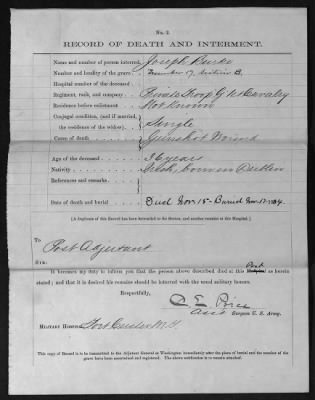 No. 2.
RECORD OF DEATH AND INTERMENT.
Name and number of person interred, Joseph Burke
Number and locality of the grave, Number 17, Section B,
Hospital number of the deceased,
Regiment, rank, and company, Private Troop G 1st Cavalry
Residence before enlistment, Not known
Conjugal condition, (and if married,
the residence of the widow), Single
Cause of death, Gunshot Wound
Age of the deceased, 36 years
Nativity, Irish, born in
References and remarks,
Date of death and burial, Died Nov. 15 - Buried Nov. 17
[A duplicate of this Record has been forwarded to the Sexton, and another remains at this Hospital.]
To
Post Adjutant
SIR:
It becomes my duty to inform you that the person above described died at this Post as herein
stated; and that it is desired his remains should be interred with the usual military honors.
Respectfully,
C. E. Price
Asst Surgeon U. S. Army.
MILITARY HOSPITAL, Fort Custer M.T.
This copy of Record is to be transmitted to the Adjutant General at Washington immediately after the place of burial and the number of the
grave have been inserted in the above record. The above notification is to remain attached.